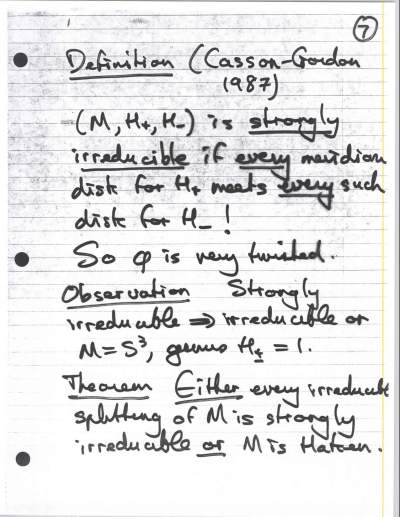 7
Definition (Casson-Gordon
1987)
(M, H₊, H₋) is strongly
irreducible if every meridian
disk for H₊ meets every such
disk for H₋ !
So φ is very twisted.
Observation Strongly
irreducible ⇒ irreducible or
M = S³, genus H± = 1.
Theorem Either every irreducible
splitting of M is strongly
irreducible or M is Haken.